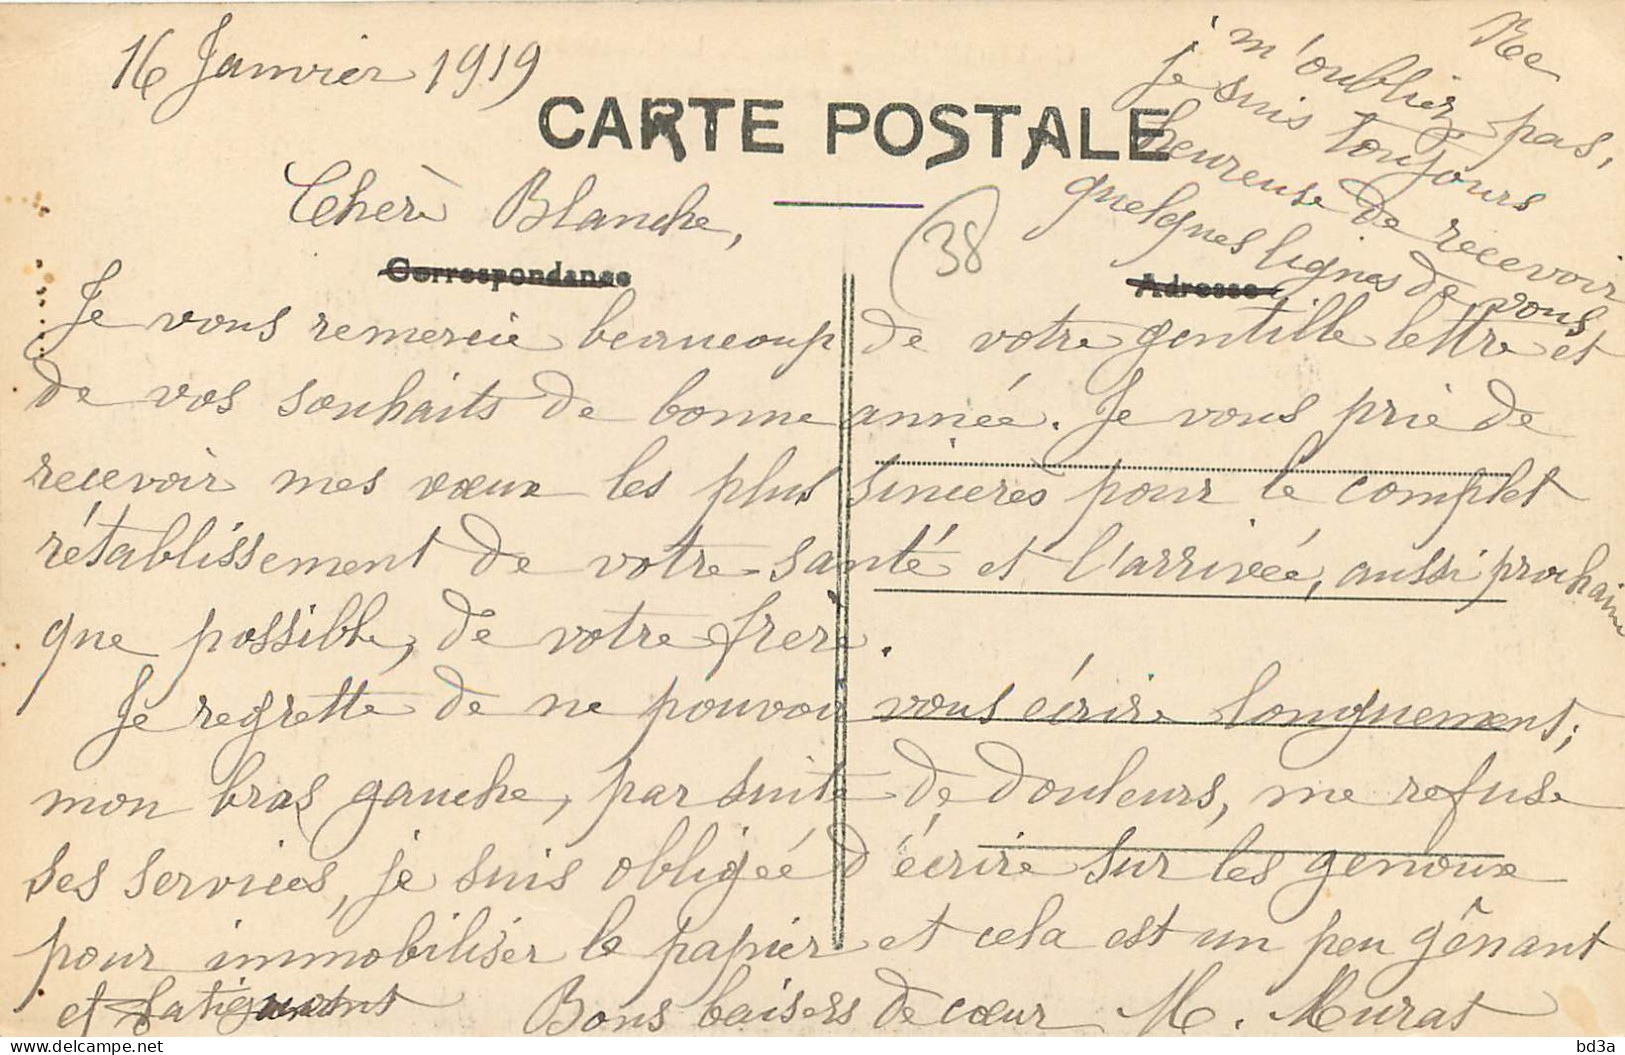 16 Janvier 1919
CARTE POSTALE
Chère Blanche,
38
Correspondance
Adresse
Je vous remercie beaucoup de votre gentille lettre et
de vos souhaits de bonne année. Je vous prie de
recevoir mes vœux les plus sincères pour le complet
rétablissement de votre santé et l'arrivée, aussi prochaine
que possible, de votre frère.
Je regrette de ne pouvoir vous écrire longuement;
mon bras gauche, par suite de douleurs, me refuse
ses services, je suis obligée d'écrire sur les genoux
pour immobiliser le papier et cela est un peu gênant
et fatiguant Bons baisers de cœur M. Murat
Ne
m'oubliez pas,
je suis toujours
heureuse de recevoir
quelques lignes de vous
bd3a